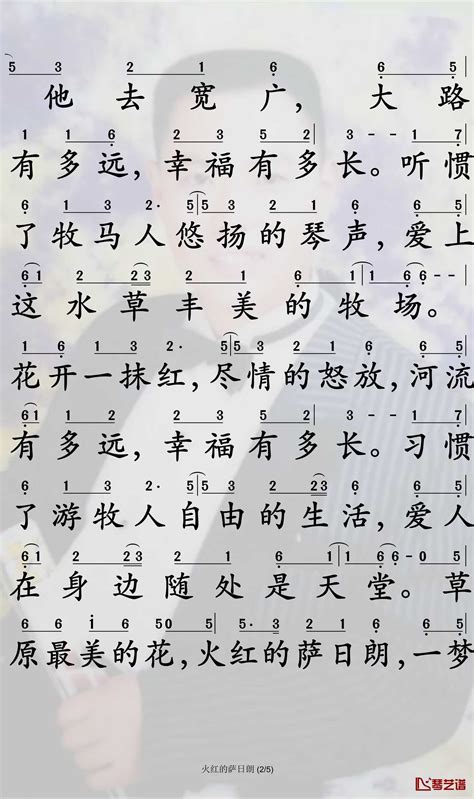 5 3 2 1 6 6 5
他去宽广，大路
1 1 6 2 3 5 2 3 - - 1 7
有多远，幸福有多长。听惯
6 1 3 2· 5 5 3 2 1 2 6 5
了牧马人悠扬的琴声，爱上
6 1 2 2 3 2 1 6 1 1 6 - -
这水草丰美的牧场。
6 1 1 3 2· 5 5 3 2 1 6 5
花开一抹红，尽情的怒放，河流
6 1 1 2 2 3 5 2 3 - - 1 7
有多远，幸福有多长。习惯
6 1 3 2· 5 5 3 2 1 2 6 5
了游牧人自由的生活，爱人
6 1 2 2 3 2 1 6 1 1 6 6 - 0 5
在身边随处是天堂。草
6 6 i 6 5 0 5 5·3 2 1 2 3 6 5
原最美的花，火红的萨日朗，一梦
火红的萨日朗 (2/5)
琴艺谱